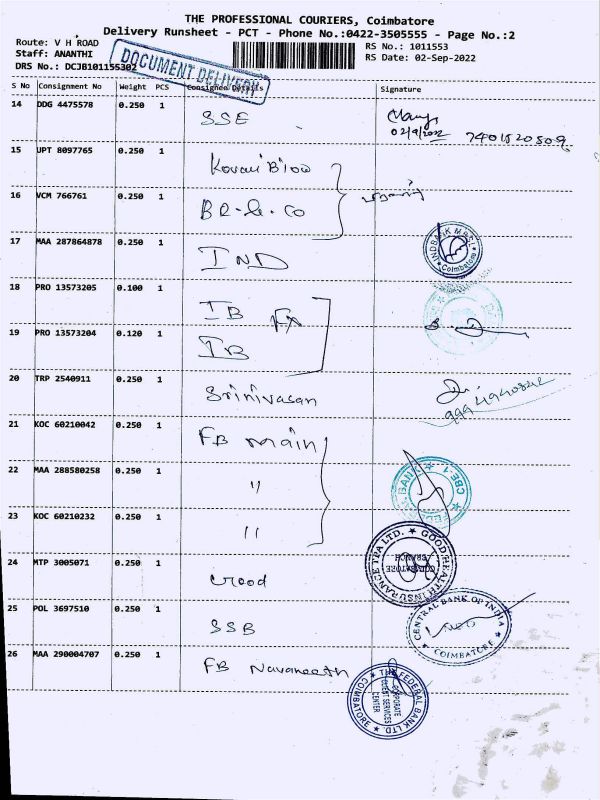 THE PROFESSIONAL COURIERS, Coimbatore
Delivery Runsheet - PCT - Phone No.:0422-3505555 - Page No.:2
Route: V H ROAD
RS No.: 1011553
Staff: ANANTHI
RS Date: 02-Sep-2022
DRS No.: DCJB101155302
DOCUMENT DELIVERY
S No Consignment No Weight PCS Consignee Details Signature
14 DDG 4475578 0.250 1 SSE
02/9/2022 7401520509
15 UPT 8097765 0.250 1
16 VCM 766761 0.250 1 BR & Co
17 MAA 287864878 0.250 1 IND
INDBANK Coimbatore
18 PRO 13573205 0.100 1 IB FX
19 PRO 13573204 0.120 1 IB
20 TRP 2540911 0.250 1 Srinivasan
21 KOC 60210042 0.250 1 FB main
22 MAA 288580258 0.250 1 "
BANK CBE-1
23 KOC 60210232 0.250 1 "
GOOD HEALTH INSURANCE TPA LTD.
COIMBATORE
BRANCH
24 MTP 3005071 0.250 1 Good
25 POL 3697510 0.250 1 SSB
CENTRAL BANK OF INDIA
COIMBATORE
26 MAA 290004707 0.250 1 FB Navaneeth
THE FEDERAL BANK LTD
CORPORATE
CLIENT SERVICES
CENTER
COIMBATORE